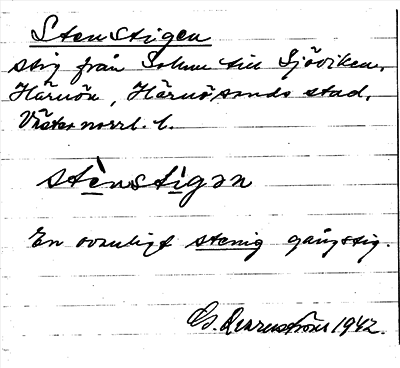 Stenstigen
stig från Solum till Sjöviken,
Härnön, Härnösands stad,
Västernorrl. l.
stènstìgən
En ovanligt stenig gångstig.
1942.